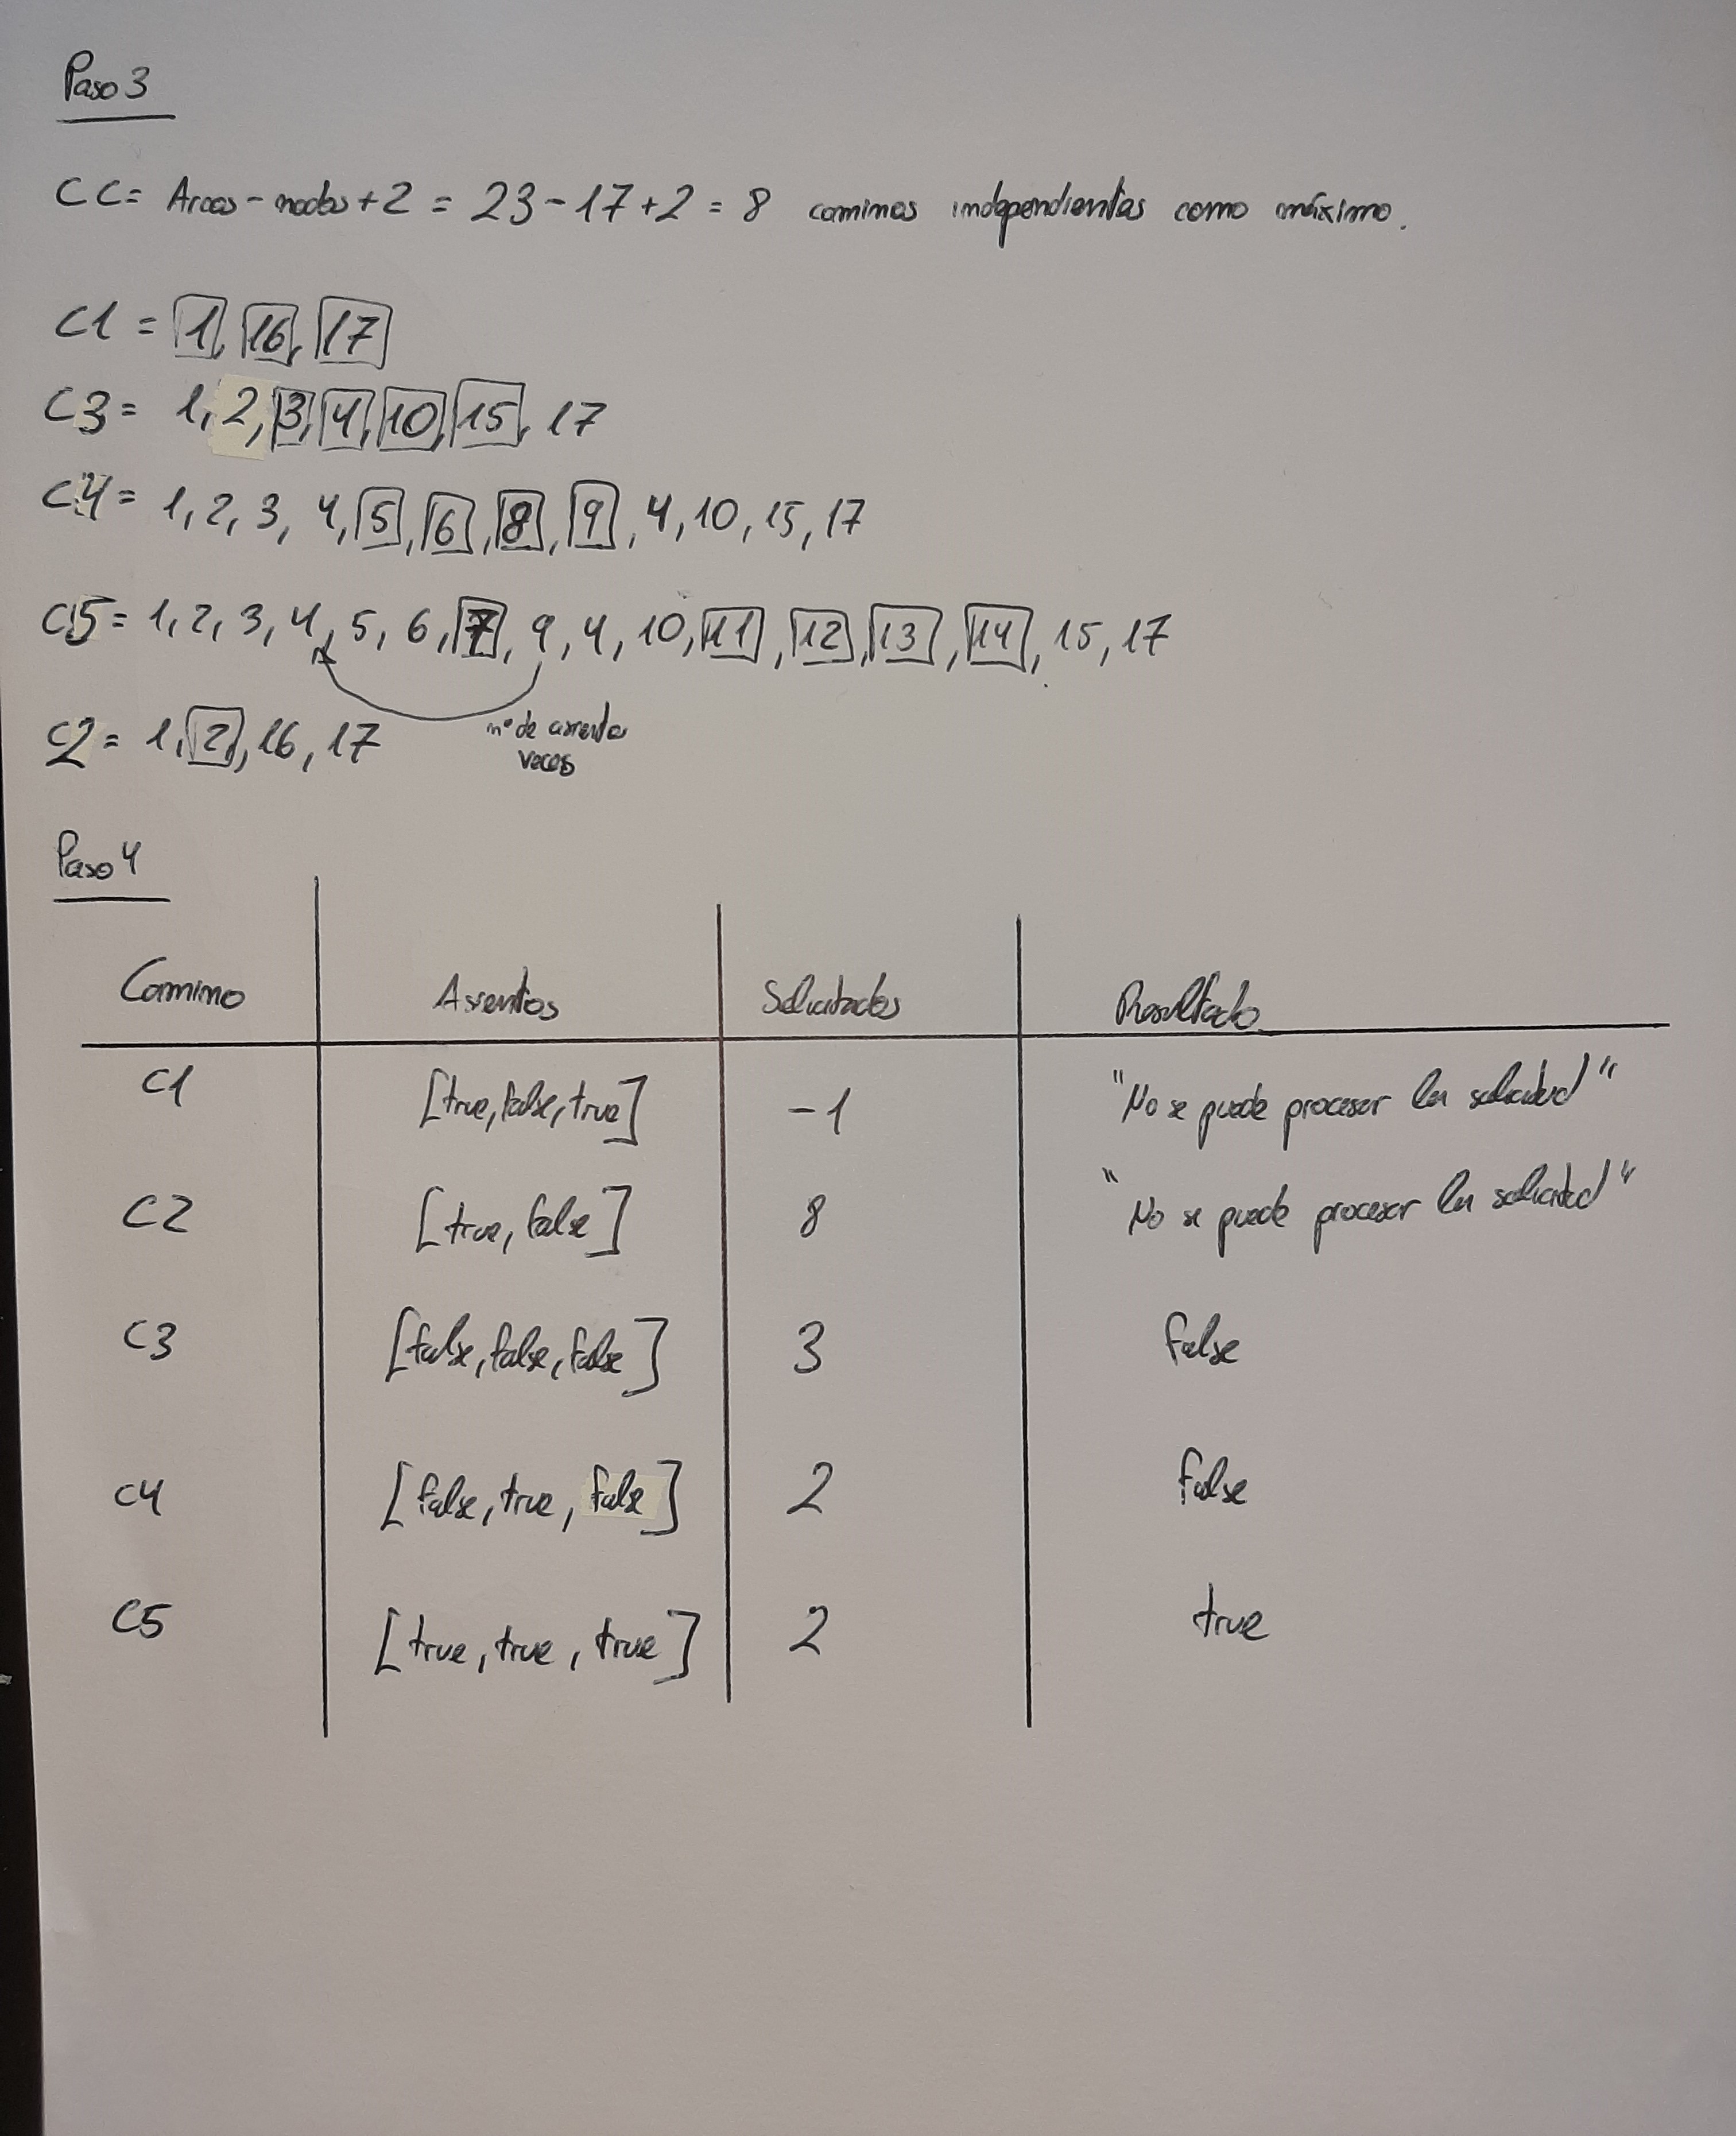 Paso 3
CC = Arcos - nodos + 2 = 23 - 17 + 2 = 8 caminos independientes como máximo.
C1 = 1, 16, 17
C3 = 1, 2, 3, 4, 10, 15, 17
C4 = 1, 2, 3, 4, 5, 6, 8, 9, 4, 10, 15, 17
C5 = 1, 2, 3, 4, 5, 6, 7, 9, 4, 10, 11, 12, 13, 14, 15, 17
nº de asientos
veces
C2 = 1, 2, 16, 17
Paso 4
Camino Asientos Solicitados Resultado
C1 [true, false, true] -1 "No se puede procesar la solicitud"
C2 [true, false] 8 "No se puede procesar la solicitud"
C3 [false, false, false] 3 false
C4 [false, true, false] 2 false
C5 [true, true, true] 2 true